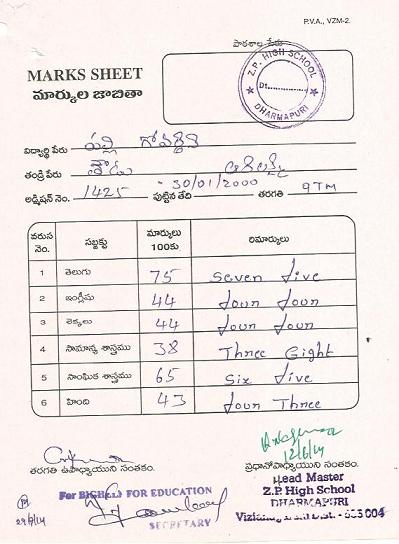 P.V.A., VZM-2.
పాఠశాల పేరు
Z.P. HIGH SCHOOL
Dt.
DHARMAPURI
MARKS SHEET
మార్కుల జాబితా
విద్యార్థి పేరు గోవర్ధన్
తండ్రి పేరు తౌడు
అడ్మిషన్ నెం. 1425 పుట్టిన తేది 30/01/2000 తరగతి 9TH
వరుస నెం. సబ్జక్టు మార్కులు 100కు రిమార్కులు
1 తెలుగు 75 Seven five
2 ఇంగ్లీషు 44 four four
3 లెక్కలు 44 four four
4 సామాన్య శాస్త్రము 38 Three Eight
5 సాంఘిక శాస్త్రము 65 Six five
6 హింది 43 four Three
12/6/14
తరగతి ఉపాధ్యాయుని సంతకం. ప్రధానోపాధ్యాయుని సంతకం.
Head Master
Z.P. High School
DHARMAPURI
For FOR EDUCATION
SECRETARY